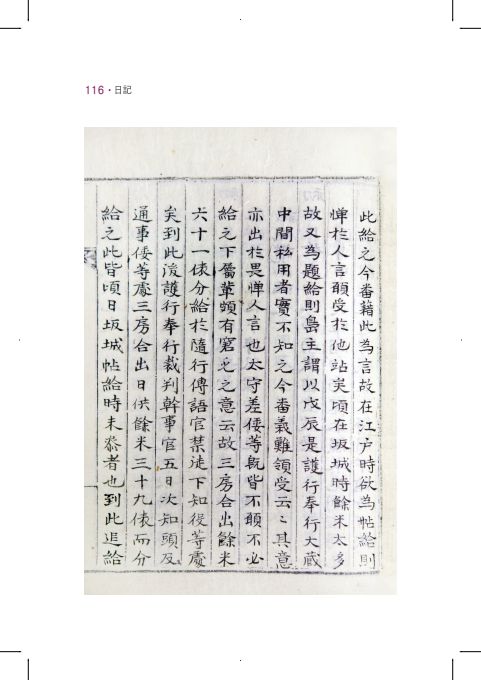 116・日記
此給之今番藉此為言故在江戶時欲為帖給則
憚於人言願受於他站矣頃在坂城時餘米太多
故又為題給則島主謂以戊辰是護行奉行大藏
中間私用者實不知之今番義難領受云〻其意
亦出於畏憚人言也太守差倭等既皆不願不必
給之下屬輩頗有窘乏之意云故三房合出餘米
六十一俵分給於隨行傳語官禁徒下知役等處
矣到此後護行奉行裁判幹事官五日次知頭及
通事倭等處三房合出日供餘米三十九俵而分
給之此皆頃日坂城帖給時未黍者也到此追給